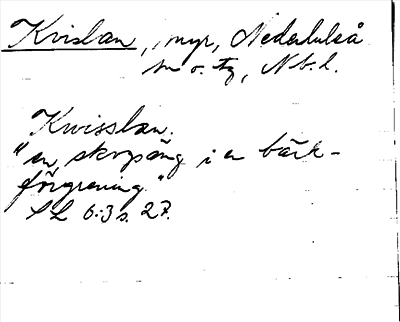 Kvislan, myr, Nederluleå
sn o. tg, Nb. l.
Kvisslan.
"en skogsäng i en bäck-
förgrening."
SL 6:3 s. 27.